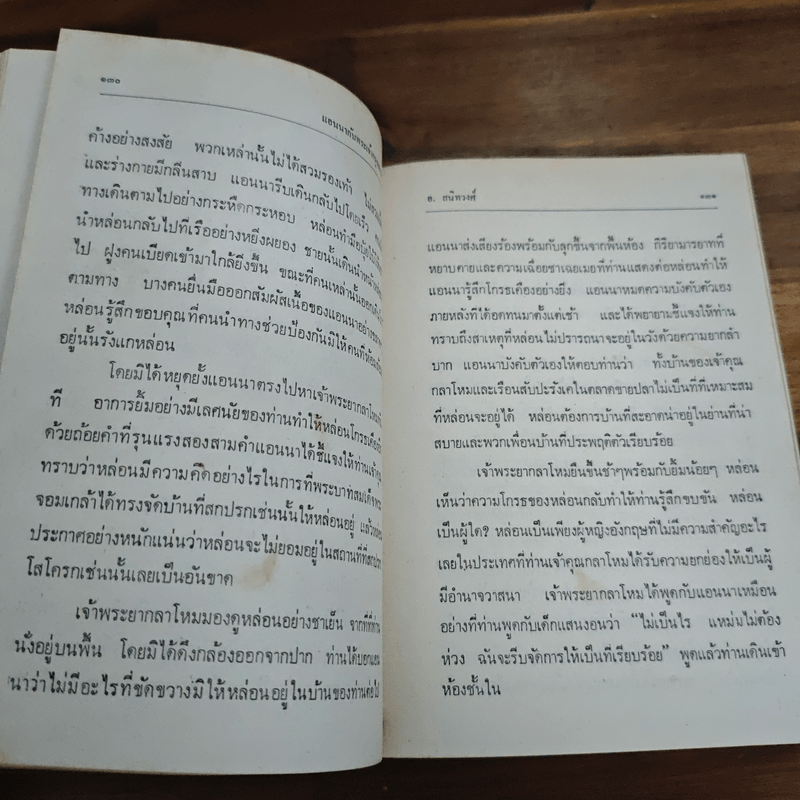 ๑๓๐
แอนนากับพระเจ้า
ค้างอย่างสงสัย พวกเหล่านั้นไม่ได้สวมรองเท้า ไม่สวม
และร่างกายมีกลิ่นสาบ แอนนารีบเดินกลับไปโดยเร็ว
ทางเดินตามไปอย่างกระหืดกระหอบ หล่อนทำมือ
นำหล่อนกลับไปที่เรืออย่างหยิ่งผยอง ชายนั้นเดินนำหน้า
ไป ฝูงคนเบียดเข้ามาใกล้ยิ่งขึ้น ขณะที่คนเหล่านั้นออกเดิน
ตามทาง บางคนยื่นมือออกสัมผัสเนื้อของแอนนาอย่าง
หล่อนรู้สึกขอบคุณที่คนนำทางช่วยป้องกันมิให้คนที่
อยู่นั้นรังแกหล่อน
โดยมิได้หยุดยั้งแอนนาตรงไปหาเจ้าพระยากลาโหม
ที อาการยิ้มอย่างมีเลศนัยของท่านทำให้หล่อนโกรธ
ด้วยถ้อยคำที่รุนแรงสองสามคำแอนนาได้ชี้แจงให้ท่าน
ทราบว่าหล่อนมีความคิดอย่างไรในการที่พระบาทสมเด็จพระ
จอมเกล้าได้ทรงจัดบ้านที่สกปรกเช่นนั้นให้หล่อนอยู่ แล้วหล่อน
ประกาศอย่างหนักแน่นว่าหล่อนจะไม่ยอมอยู่ในสถานที่ที่สกปรก
โสโครกเช่นนั้นเลยเป็นอันขาด
เจ้าพระยากลาโหมมองดูหล่อนอย่างชาเย็น จากที่ที่ท่าน
นั่งอยู่บนพื้น โดยมิได้ดึงกล้องออกจากปาก ท่านได้บอกแอน
นาว่าไม่มีอะไรที่ขัดขวางมิให้หล่อนอยู่ในบ้านของท่านต่อไป
อ. สนิทวงศ์
๑๓๑
แอนนาส่งเสียงร้องพร้อมกับลุกขึ้นจากพื้นห้อง กิริยามารยาทที่
หยาบคายและความเฉื่อยชาเฉยเมยที่ท่านแสดงต่อหล่อนทำให้
แอนนารู้สึกโกรธเคืองอย่างยิ่ง แอนนาหมดความบังคับตัวเอง
ภายหลังที่ได้อดทนมาตั้งแต่เช้า และได้พยายามชี้แจงให้ท่าน
ทราบถึงสาเหตุที่หล่อนไม่ปรารถนาจะอยู่ในวังด้วยความยากลำ
บาก แอนนาบังคับตัวเองให้ตอบท่านว่า ทั้งบ้านของเจ้าคุณ
กลาโหมและเรือนสับปะรังเคในตลาดขายปลาไม่เป็นที่ที่เหมาะสม
ที่หล่อนจะอยู่ได้ หล่อนต้องการบ้านที่สะอาดน่าอยู่ในย่านที่น่า
สบายและพวกเพื่อนบ้านที่ประพฤติตัวเรียบร้อย
เจ้าพระยากลาโหมยืนขึ้นช้าๆพร้อมกับยิ้มน้อยๆ หล่อน
เห็นว่าความโกรธของหล่อนกลับทำให้ท่านรู้สึกขบขัน หล่อน
เป็นผู้ใด? หล่อนเป็นเพียงผู้หญิงอังกฤษที่ไม่มีความสำคัญอะไร
เลยในประเทศที่ท่านเจ้าคุณกลาโหมได้รับความยกย่องให้เป็นผู้
มีอำนาจวาสนา เจ้าพระยากลาโหมได้พูดกับแอนนาเหมือน
อย่างที่ท่านพูดกับเด็กแสนงอนว่า “ไม่เป็นไร แหม่มไม่ต้อง
ห่วง ฉันจะรีบจัดการให้เป็นที่เรียบร้อย” พูดแล้วท่านเดินเข้า
ห้องชั้นใน